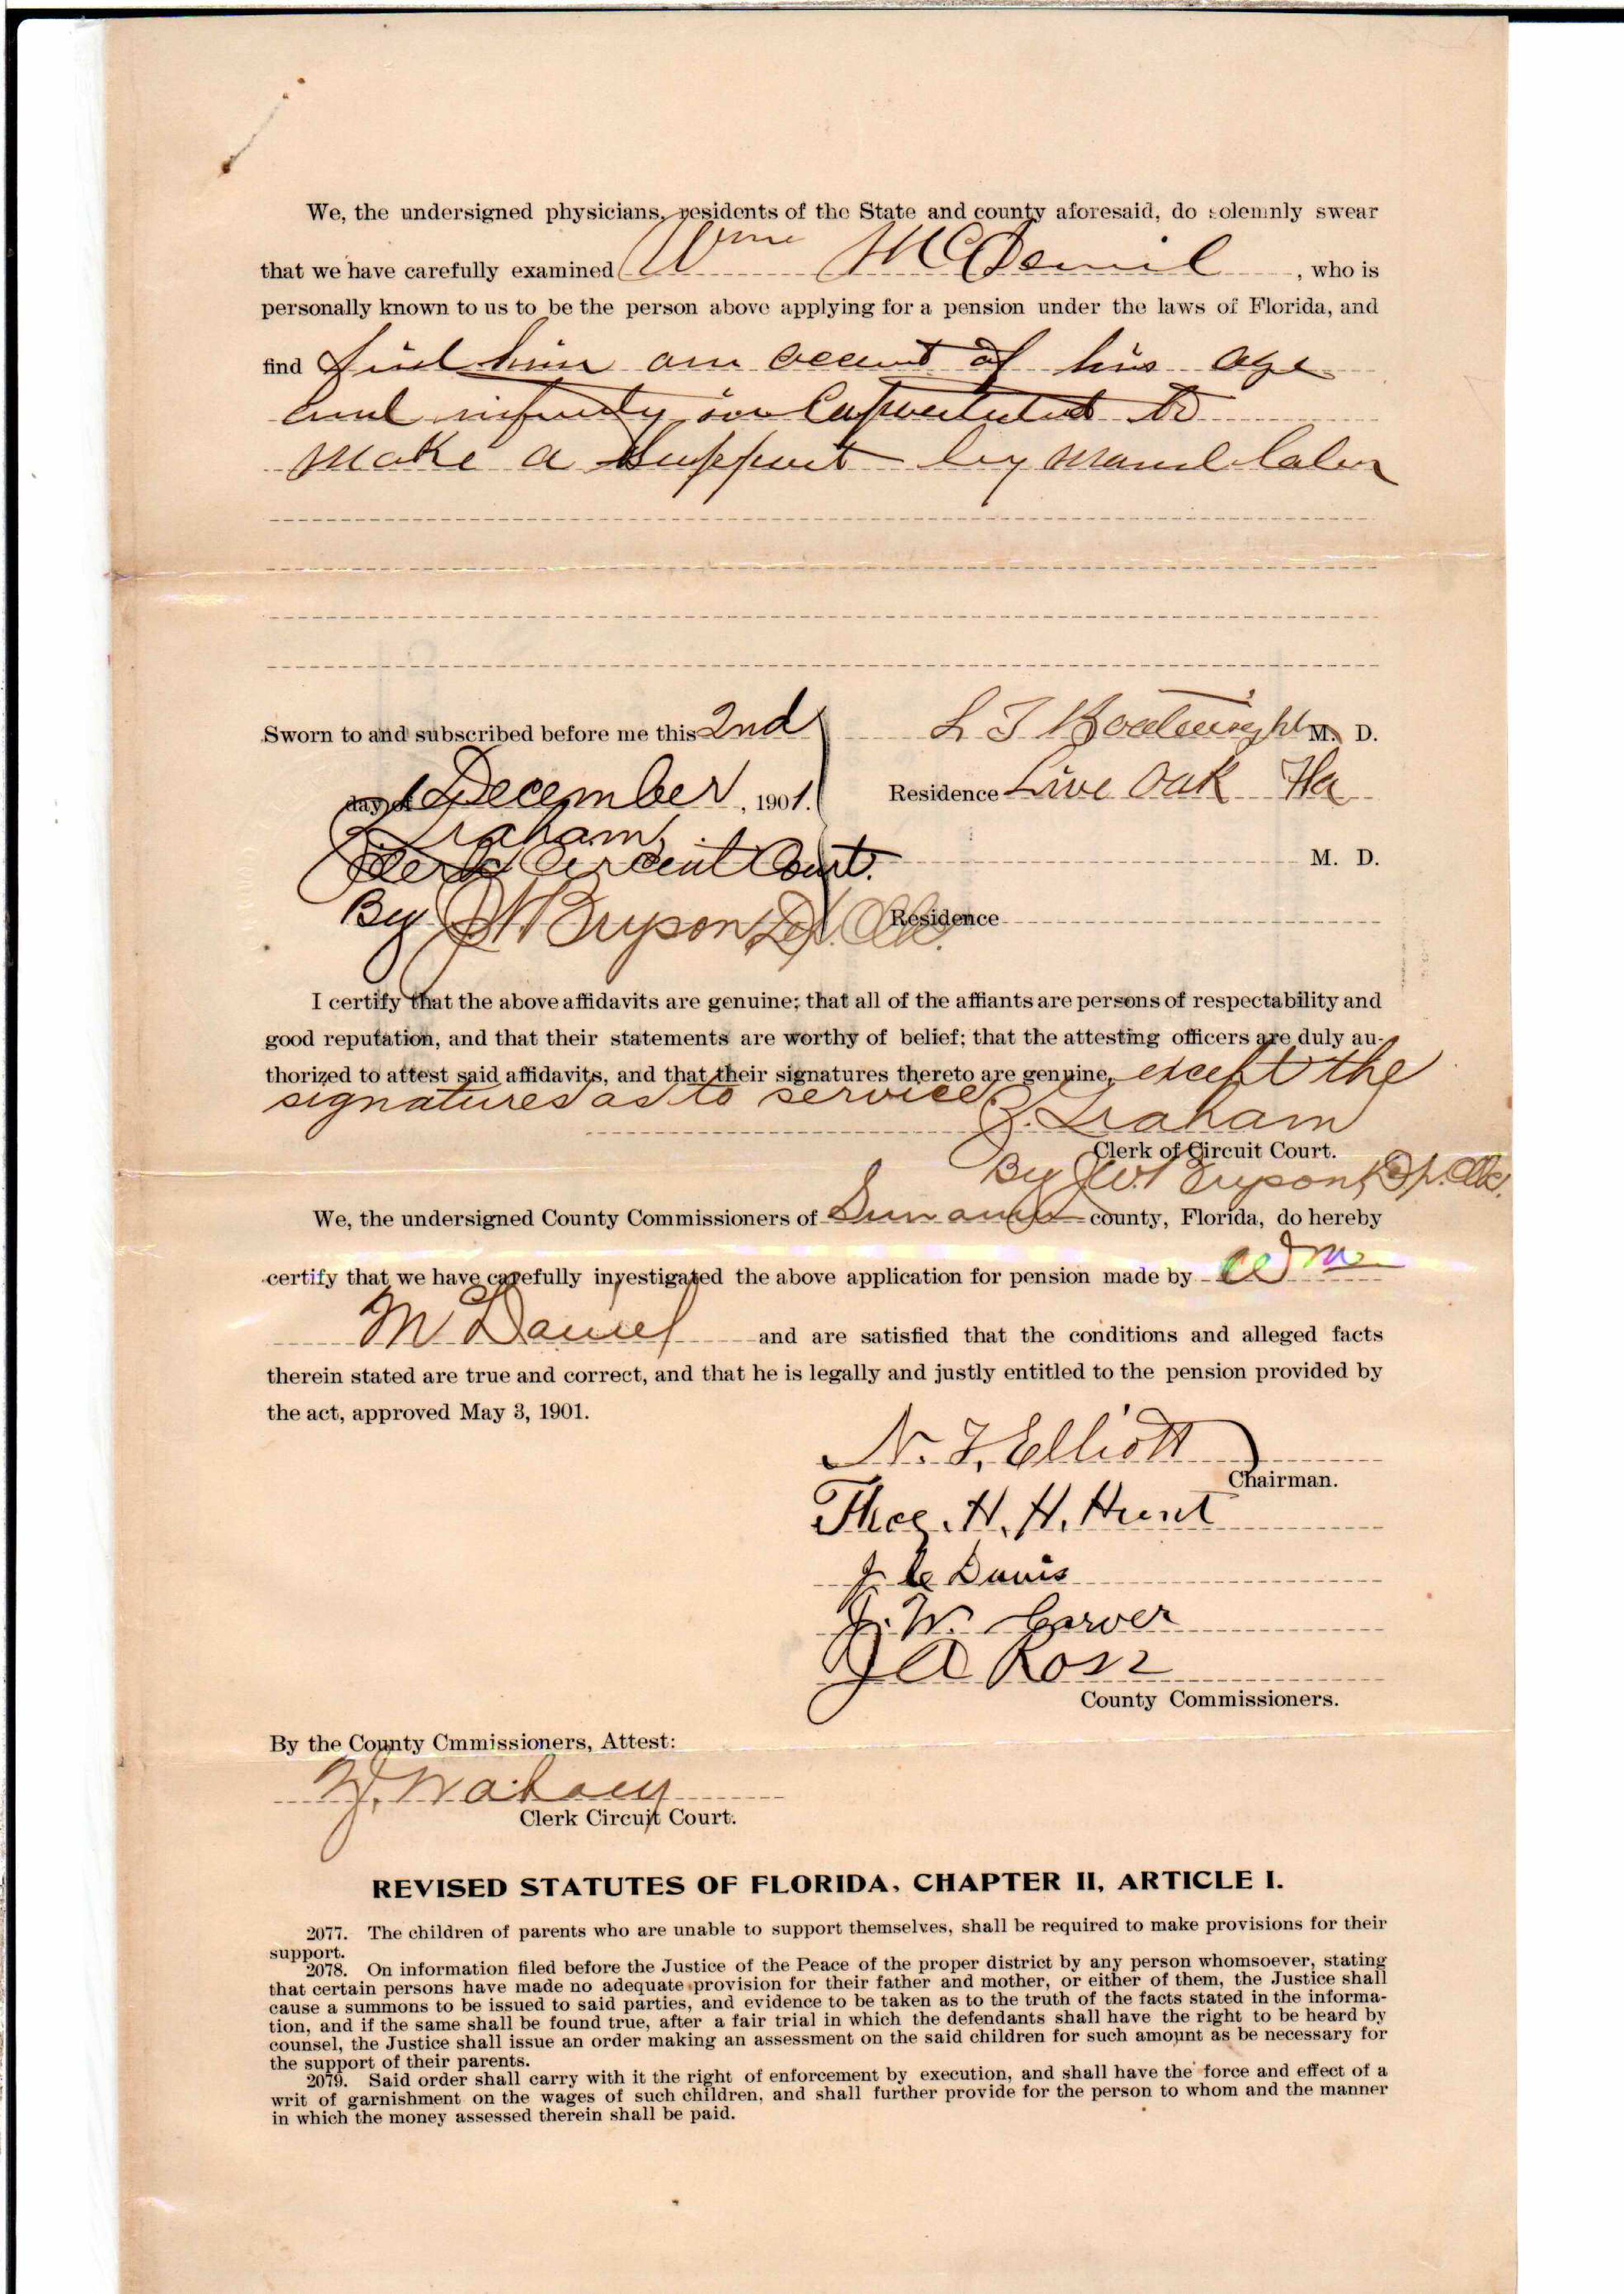 We, the undersigned physicians, residents of the State and county aforesaid, do solemnly swear
that we have carefully examined Wm McDanil, who is
personally known to us to be the person above applying for a pension under the laws of Florida, and
find find him on account of his age
and infirmity in Capacitated to
make a support by manul labor
Sworn to and subscribed before me this 2nd
day of December, 1901.
J. Graham,
Clerk Circuit Court.
By J W Bryson, Dp. Clk.
L T Boatwright M. D.
Residence Live Oak Fla
M. D.
Residence
I certify that the above affidavits are genuine; that all of the affiants are persons of respectability and
good reputation, and that their statements are worthy of belief; that the attesting officers are duly au-
thorized to attest said affidavits, and that their signatures thereto are genuine, except the
signatures as to service.
J. Graham
Clerk of Circuit Court.
By J.W. Bryson, Dp. Clk.
We, the undersigned County Commissioners of Suwannee county, Florida, do hereby
certify that we have carefully investigated the above application for pension made by Wm
McDaniel and are satisfied that the conditions and alleged facts
therein stated are true and correct, and that he is legally and justly entitled to the pension provided by
the act, approved May 3, 1901.
N. T. Elliott
Chairman.
Theo. H. H. Hunt
J C Davis
J. W. Carver
J A Ross
County Commissioners.
By the County Cmmissioners, Attest:
J. Graham
Clerk Circuit Court.
REVISED STATUTES OF FLORIDA, CHAPTER II, ARTICLE I.
2077. The children of parents who are unable to support themselves, shall be required to make provisions for their
support.
2078. On information filed before the Justice of the Peace of the proper district by any person whomsoever, stating
that certain persons have made no adequate provision for their father and mother, or either of them, the Justice shall
cause a summons to be issued to said parties, and evidence to be taken as to the truth of the facts stated in the informa-
tion, and if the same shall be found true, after a fair trial in which the defendants shall have the right to be heard by
counsel, the Justice shall issue an order making an assessment on the said children for such amount as be necessary for
the support of their parents.
2079. Said order shall carry with it the right of enforcement by execution, and shall have the force and effect of a
writ of garnishment on the wages of such children, and shall further provide for the person to whom and the manner
in which the money assessed therein shall be paid.